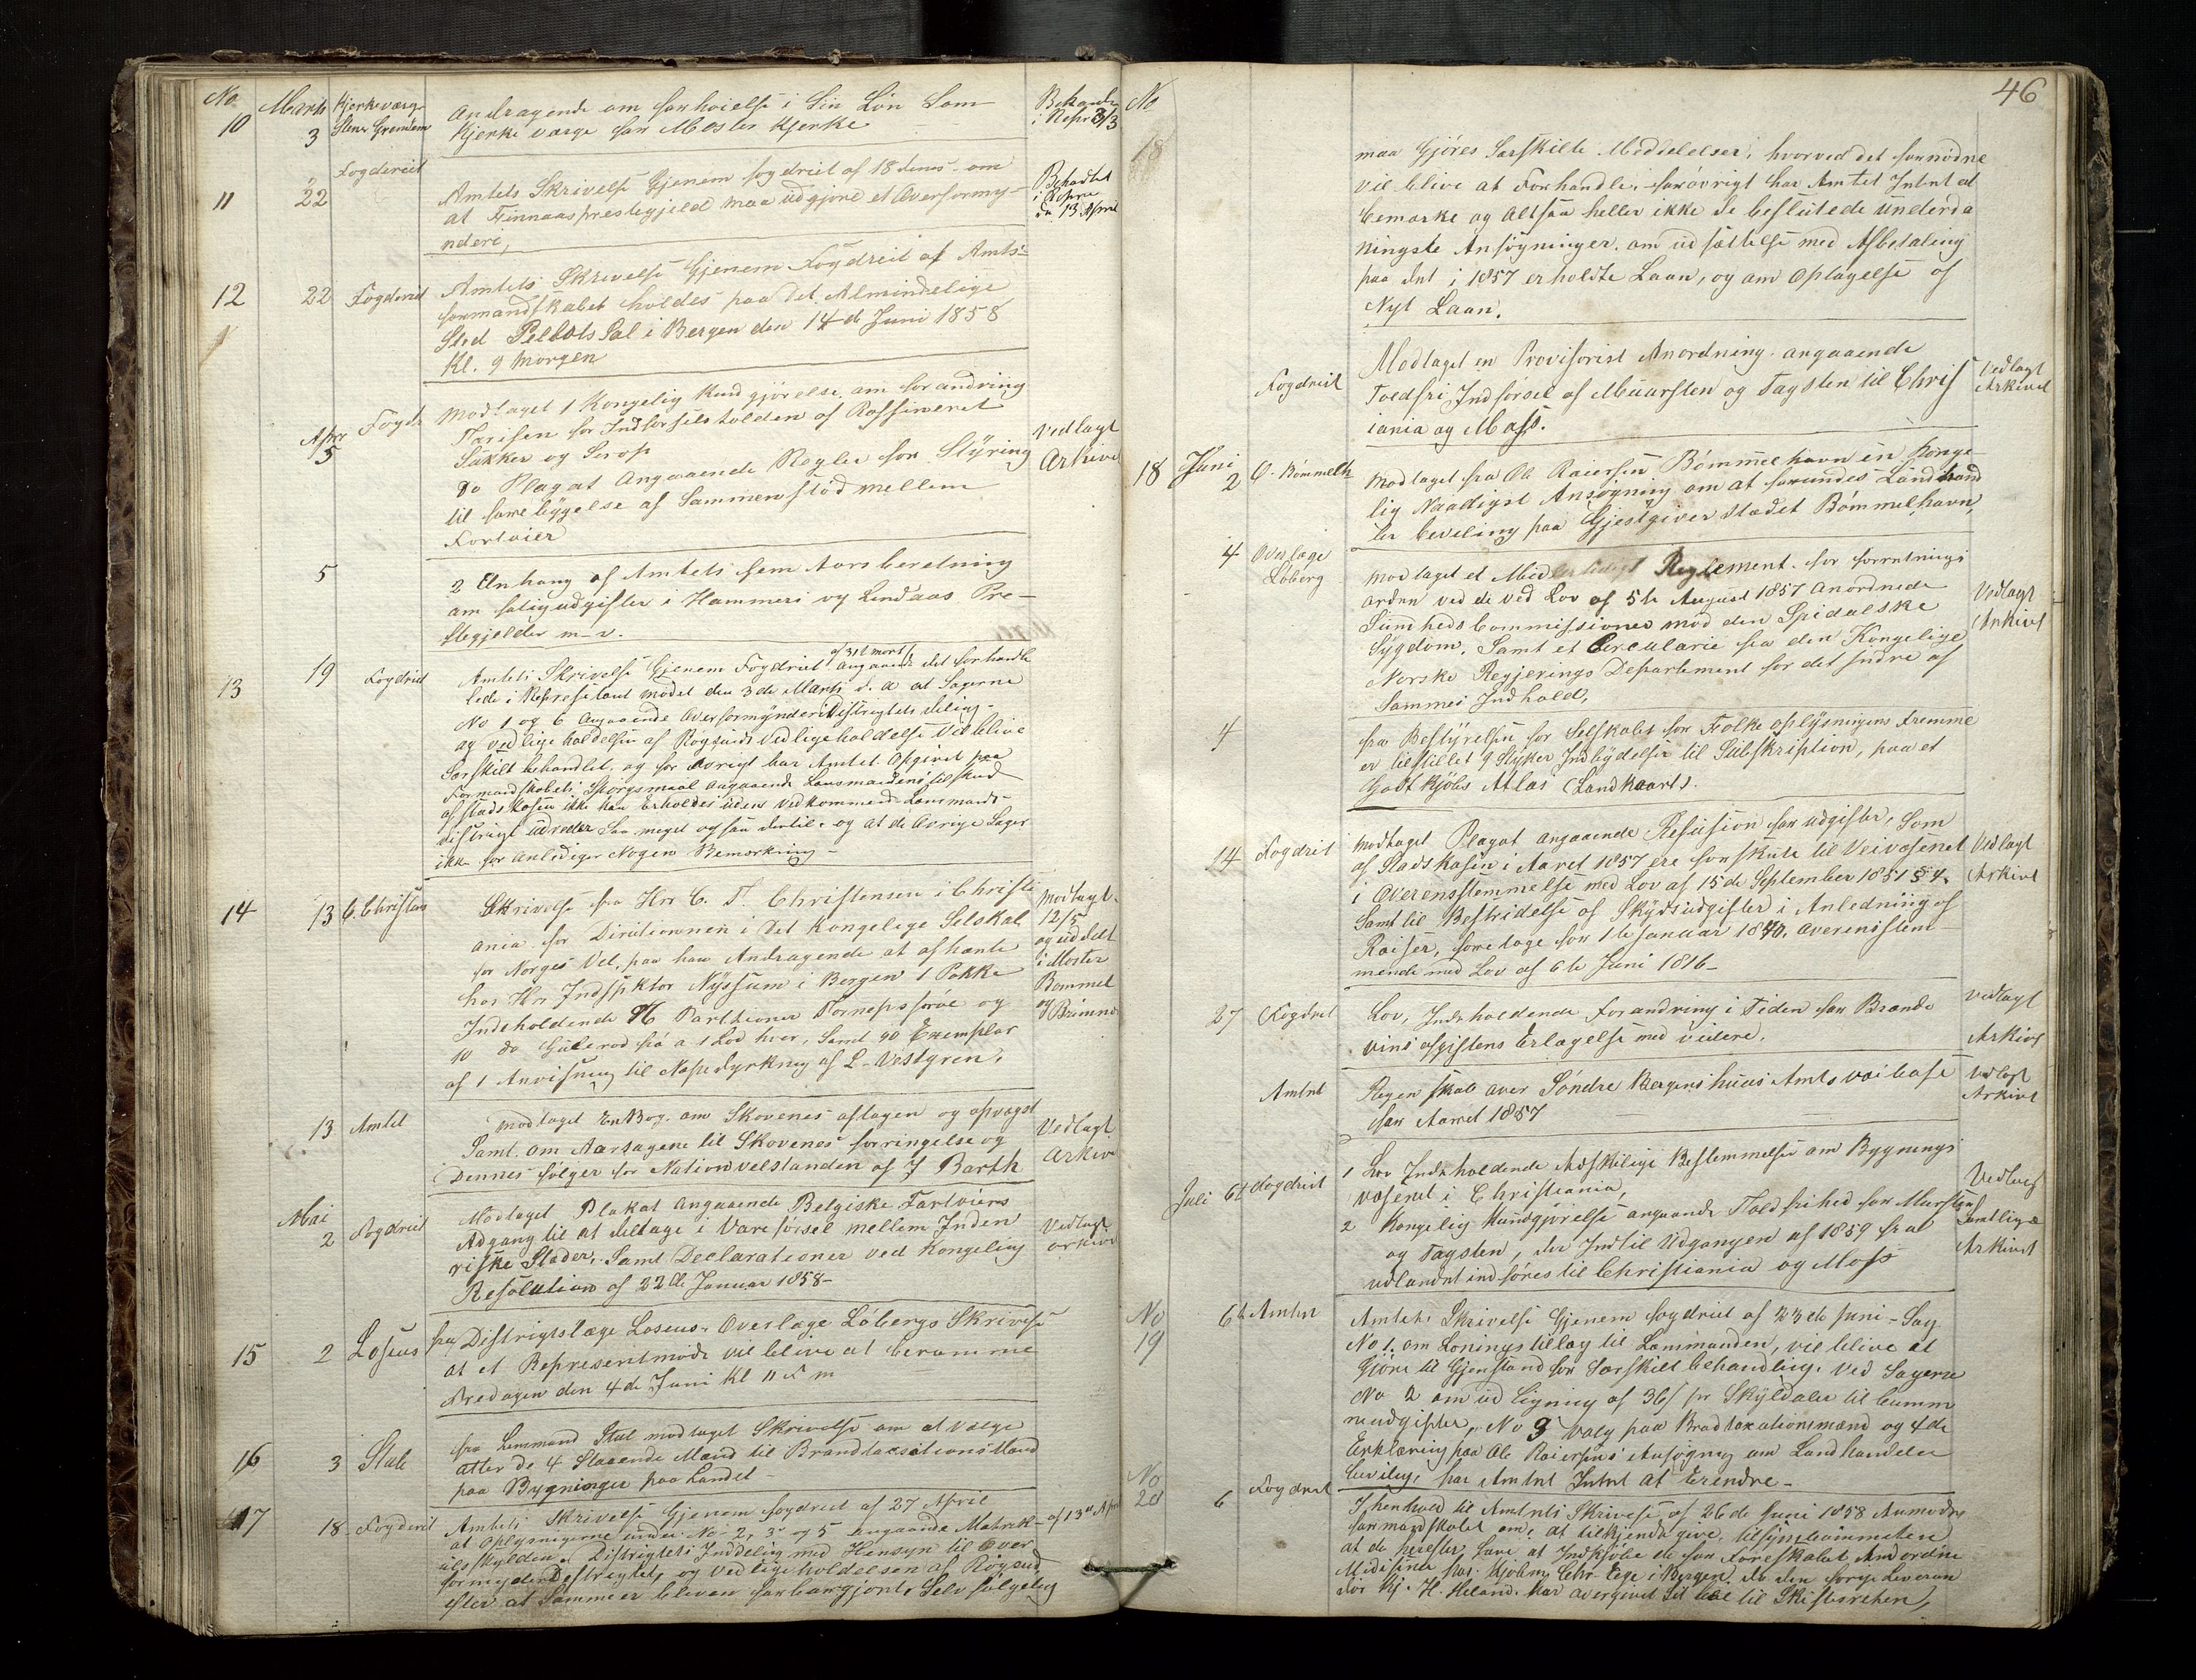 No Marts Kjerkeværge
10 3 Sten Grønlem Andragende om forhøielse i Sin Løn Som Behandlet
Kjerke værge for Moster Kjerke i Repr 3/3
11 22 Fogderiet Amtets Skrivelse Gjenem fogdriet af 18 denes om Behadlet
at Finnaas prestegjeld maa udgjøre et Overformy- i Repre
nderi, da 13 April
12 22 Fogderiet Amtets Skrivelse Gjenem Fogdreit af Amts-
formandskabet holdes paa det Almindelige
Sted Peldots Sal i Bergen den 14de Juni 1858
Kl. 9 Morgen
Apr 5 Fogdr Modtaget 1 Kongelig Kundgjørelse om forandring
Tarifen for Indførselstolden af Raffineret Vedlagt
Sukker og Serop Arkivet
do Plagat Angaaende Regler for Styring
til forebyggelse af Sammenstød mellem
Fortøier
5 2 Anhang af Amtets fem Aarsberetning
om fatigudgifter i Hammers og Lindaas Pre-
stegjelder m-v.
13 19 Fogdriet Amtets Skrivelse Gjenem Fogdriet af 31t Marts Angaaende det forhandle
lede i Represetant mødet den 3de Marts d. a at Sagerne
No 1 og 6 Angaaende Overformynderi Distrigtets deling-
og vedlige holdelsen af Røgsunds Vedligeholdelse Vil blive
Sarskilt behandlet, og for Øvrigt har Amtet Opgivet paa
Formandskabets Spørgsmaal Angaaende Lønsmandens tilskud
af Stadskasen ikke kan Erholdes uden Vedkommende Lænsmands-
distrigt udreder Saa meget ogsaa dertil. og at de Øvrige Sager
ikke for Anlediger Nogen Bemerkning-
14 13 C. Christens Skrivelse fra Hrr C. T. Christensen i Christi Modtagt
ania for Diriktionnen i Det Kongelige Selskab 12/5
for Norges Vel, paa hans Andragende at afhænte og uddelt
hos Hrr Indspktor Nyssum i Bergen 1 Pakke i Moster
Indeholdende 76 Parthioner Tornepsfrøe og Bømmel
10 do Gulerod frø a 1 Lod hver, Samt 90 Exemplar og Brimnæ
af 1 Anvisning til Nepedyrkning af L-Vestgren,
13 Amtet Modtaget En Bog om Skovenes aftagen og opvægst
Samt om Aarsagene til Skovenes forringelse og Vedlagt
Dennes følger for Nationvelstanden af J Barth Arkivet
Mai 2 Fogdriet Modtaget Plakat Angaaende Belgiske Fartøiers
Adgang til at deltage i Vareførsel mellem Inden Vedlagt
riske Stæder, Samt Declarationer ved Kongelig arkivet
Resolution af 22de Januar 1858-
15 2 Loseus fra Distrigtslæge Loseus, Overlæge Løbergs Skrivese
at et Represintmøde vil blive at beramme
Fredagen den 4de Juni Kl 11 F m
16 3 Stale fra Lensmand Stal modtaget Skrivelse om at vælge
atter de 4 Staaende Mænd til Brandtacsationsmænd
paa Bygninger paa Landet-
17 18 Fogderiet Amtets Skrivelse Gjenem fogdriet af 27 April - af 13de April
at Oplysnigerne under No 2, 3 og 5 angaaende Matrik-
ulsskylden, Distrigtets Inddeling med Hensyn til Over
formynderDistrigtet, og Vedligeholdelsen af Røgsund
efter at Samme er bleven forbargjort, Selv følgelig
46
No
18
maa Gjøres Sarskilte Meddelelser, hvorved det fornødne
vil blive at Forhandle. forøvrigt har Amtet Intnt at
bemærke og Altsaa heller ikke de beslutede underda
ningste Ansøgninger om udsættelse med Afbetaling
paa det i 1857 erholdte Laan, og om Optagelse af
Nyt Laan,
Fogdriet Modtaget en Provisorist Anordning angaaende Vedlagt
Toldfri Indførsel af Muursten og Tagsten til Chris Arkivet
iania og Moss.
18 Juni 2 O. Bømmelh Modtaget fra Ole Raiersen Bømmelhavn en Konge-
lig Naadigst Ansøgning om at forundes Landhand
ler beveling paa Gjestgiver stædet Bømmelhavn,
4 Overlæge Løberg Modtaget et Midlertidigt Reglement for forretnings
orden ved de ved Lov af 5te August 1857 anordnede Vedlagt
Sundheds Commissioner mod den Spidalske Arkivet
Sygdom, Samt et Circularie fra den Kongelige
Norske Regjerings Departement for det Indre af
Sammes Indhold,
4 fra Bestyrelsen for Selskabet for Folke oplysningens fremme
er tilstillet 9 Styker Indbydelser til Subskription, paa et
Godtkjøbs Atlas (Landkaart).
24 Fogdrit Modtaget Plagat angaaende Refusion for udgifter, Som Vedlagt
af Stadskasen i Aaret 1857 ere forskute til Veivæsenet Arkivet
i Overensstemmelse med Lov af 15de September 1851 § 4,
Samt til Bestridelse af Skydsudgifter i Anledning af
Raiser, foretage før 1te Januar 1840, overenistem-
mende med Lov af 6te Juni 1816-
27 Fogdret Lov, Indeholdende forandring i Tiden for Brænde Vedlagt
vins afgiftens Erlægelse med videre, Arkivet
Amtnt Regenskab over Søndre Bergenshuus Amts veikase Vedlagt
for Aaret 1857 Arkivet
Juli 6t Fogdreit 1 Lov Indeholdende Adskilige Bestemmelser om Bygnings Vedlagt
væsenet i Christiania, Samtlige
2 Kongelig Kundgjørelse angaande Toldfrihed for Mursten Arkivet
og Tagsten, der Indtil Udgangen af 1859 fra
udlandet indføres til Christiania og Moss
No 19 6t Amtet Amtets Skrivelse Gjenem fogdriet af 23de Juni- Sag
No 1. om Lønings tillæg til Lænsmanden, vil blive at
Gjøre til Gjenstand for Sarskilt behandling, Ved Sagerne
No 2 om udligning af 36s pr Skyldaler til Comm
neudgifter, No 3 Valg paa Brandtaxationsmænd og 4de
Erklæring paa Ole Raiersens Ansøgnig om Landhandeler
bevilig, har Amtnt Intnt at Erendre-
No 20 6 Fogdret I henhold til Amtnts Skrivese af 26de Juni 1858 Anmodes
formandskabet om, at tilkjende give tilsynskommiteen
at de herefter, have at Indkjøbe de for Koreskabet Andordne
Midisiner hos Kjøbm Chr Eege i Bergen, da den forrige Leveran
dør Hr. H. Heland har overgivet Sit boe til Skifterehten,